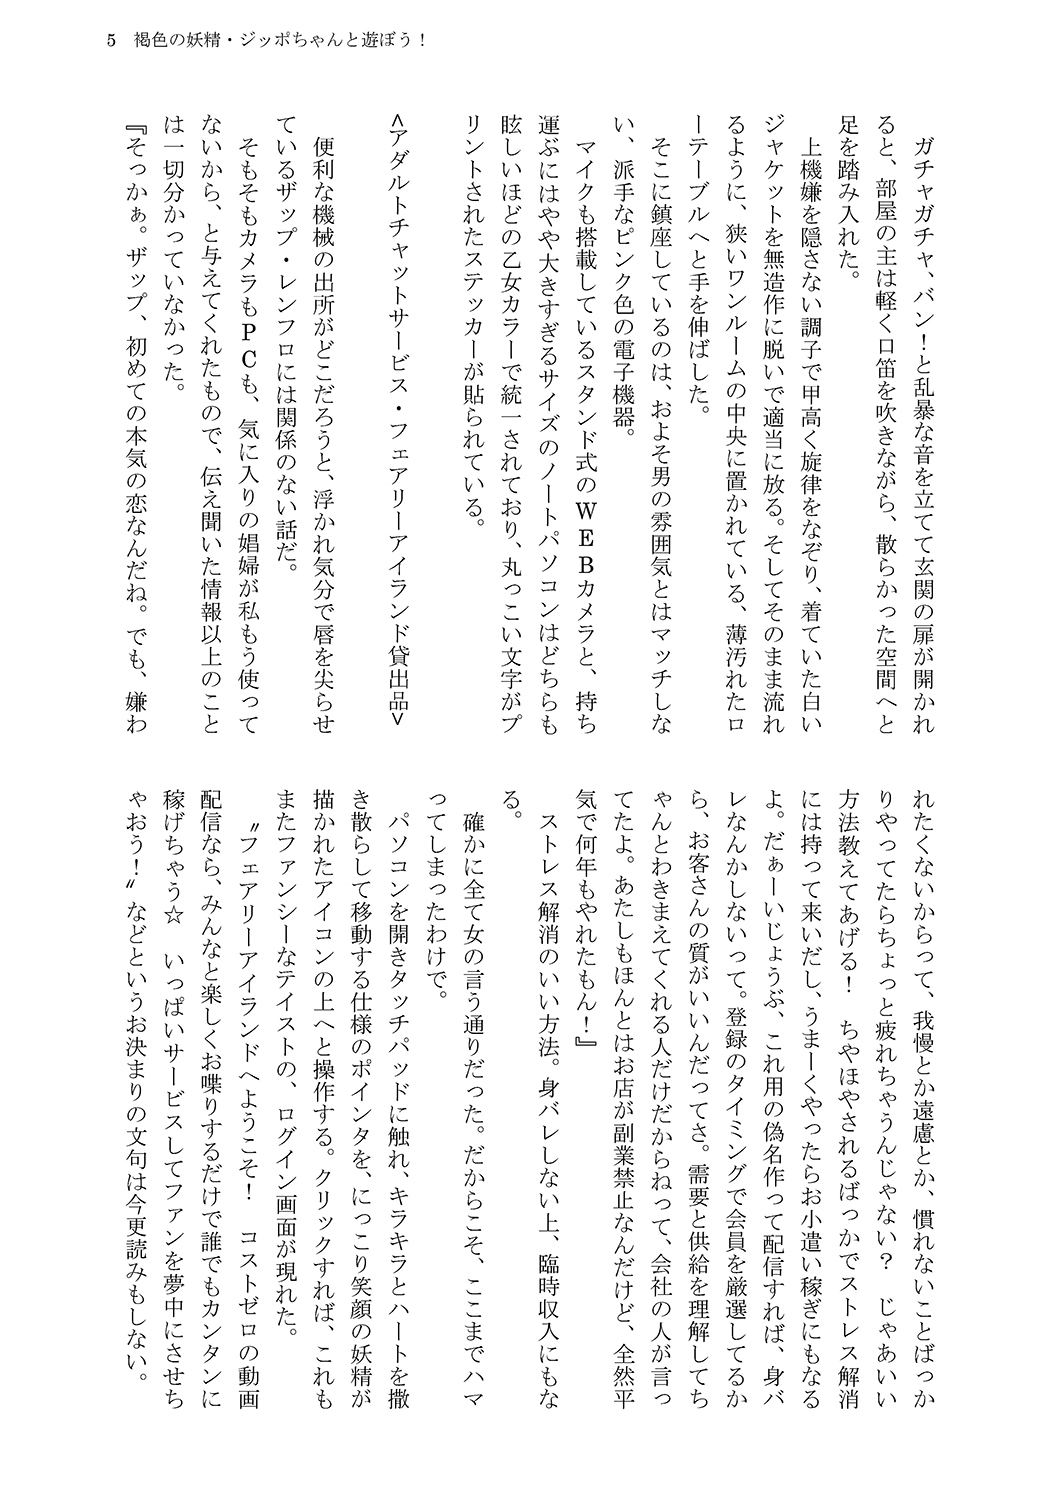 5　褐色の妖精・ジッポちゃんと遊ぼう！
　ガチャガチャ、バン！と乱暴な音を立てて玄関の扉が開かれ
ると、部屋の主は軽く口笛を吹きながら、散らかった空間へと
足を踏み入れた。
　上機嫌を隠さない調子で甲高く旋律をなぞり、着ていた白い
ジャケットを無造作に脱いで適当に放る。そしてそのまま流れ
るように、狭いワンルームの中央に置かれている、薄汚れたロ
ーテーブルへと手を伸ばした。
　そこに鎮座しているのは、およそ男の雰囲気とはマッチしな
い、派手なピンク色の電子機器。
　マイクも搭載しているスタンド式のＷＥＢカメラと、持ち
運ぶにはやや大きすぎるサイズのノートパソコンはどちらも
眩しいほどの乙女カラーで統一されており、丸っこい文字がプ
リントされたステッカーが貼られている。
＜アダルトチャットサービス・フェアリーアイランド貸出品＞
　便利な機械の出所がどこだろうと、浮かれ気分で唇を尖らせ
ているザップ・レンフロには関係のない話だ。
　そもそもカメラもＰＣも、気に入りの娼婦が私もう使って
ないから、と与えてくれたもので、伝え聞いた情報以上のこと
は一切分かっていなかった。
『そっかぁ。ザップ、初めての本気の恋なんだね。でも、嫌わ
れたくないからって、我慢とか遠慮とか、慣れないことばっか
りやってたらちょっと疲れちゃうんじゃない？　じゃあいい
方法教えてあげる！　ちやほやされるばっかでストレス解消
には持って来いだし、うまーくやったらお小遣い稼ぎにもなる
よ。だぁーいじょうぶ、これ用の偽名作って配信すれば、身バ
レなんかしないって。登録のタイミングで会員を厳選してるか
ら、お客さんの質がいいんだってさ。需要と供給を理解してち
ゃんとわきまえてくれる人だけだからねって、会社の人が言っ
てたよ。あたしもほんとはお店が副業禁止なんだけど、全然平
気で何年もやれたもん！』
　ストレス解消のいい方法。身バレしない上、臨時収入にもな
る。
　確かに全て女の言う通りだった。だからこそ、ここまでハマ
ってしまったわけで。
　パソコンを開きタッチパッドに触れ、キラキラとハートを撒
き散らして移動する仕様のポインタを、にっこり笑顔の妖精が
描かれたアイコンの上へと操作する。クリックすれば、これも
またファンシーなテイストの、ログイン画面が現れた。
　〝フェアリーアイランドへようこそ！　コストゼロの動画
配信なら、みんなと楽しくお喋りするだけで誰でもカンタンに
稼げちゃう☆　いっぱいサービスしてファンを夢中にさせち
ゃおう！〟などというお決まりの文句は今更読みもしない。